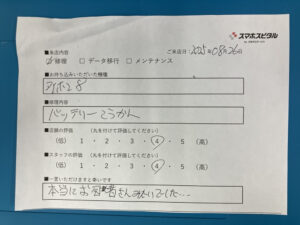 スマホスピタル
■来店内容
ご来店日 2025年08月26日
☑修理 □データ移行 □メンテナンス
■お持ち込みいただいた機種
アイホン8
■修理内容
バッテリーこうかん
■店舗の評価 (丸を付けて評価してください)
(低) 1 ・ 2 ・ 3 ・ 4 ・ 5 (高)
■スタッフの評価 (丸を付けて評価してください)
(低) 1 ・ 2 ・ 3 ・ 4 ・ 5 (高)
■一言いただけますと幸いです
本当にお医者さんみたいでした…